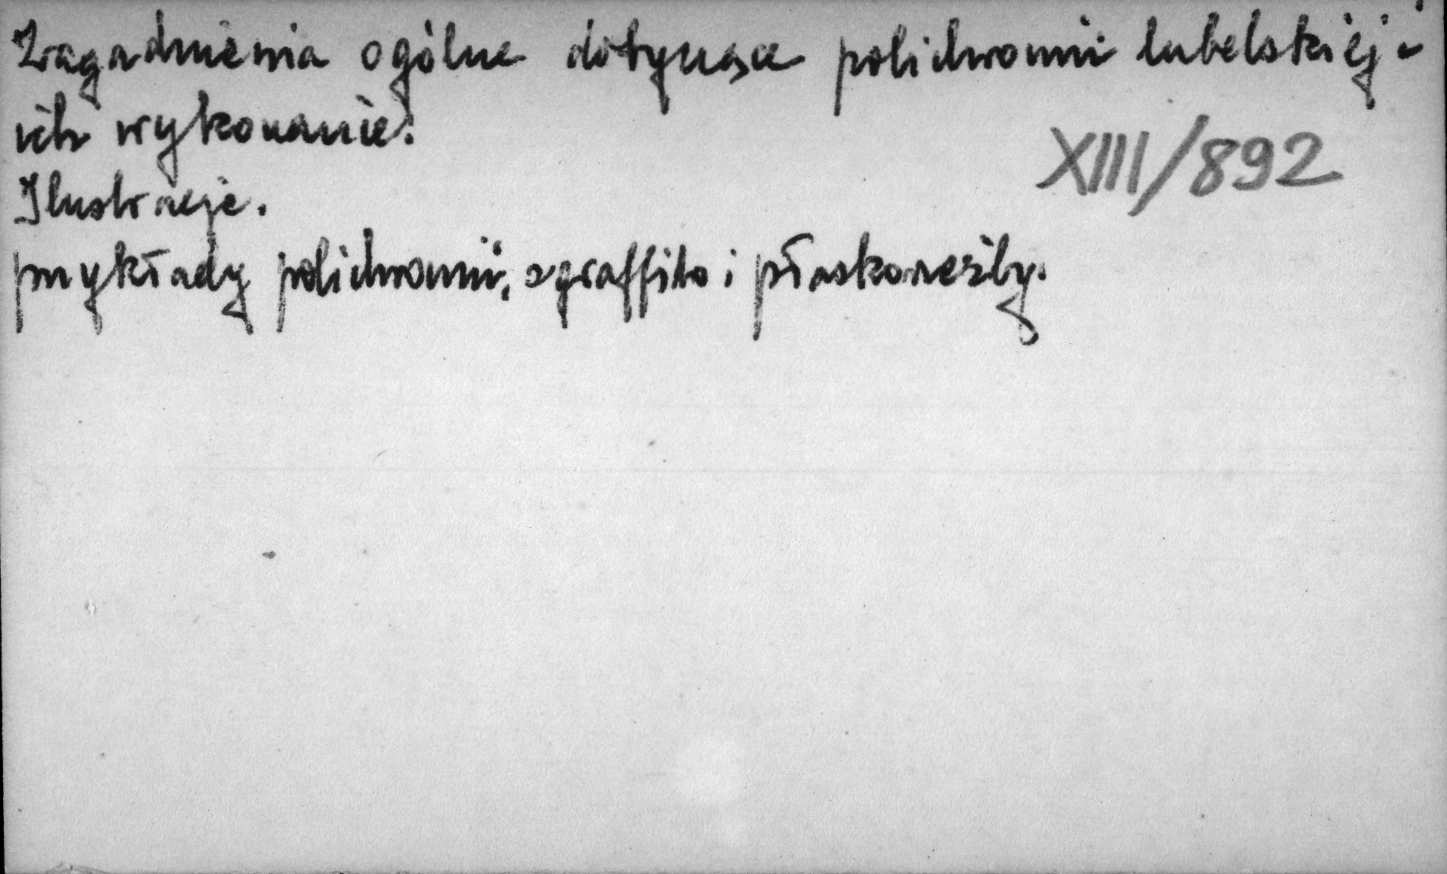 Zagadnienia ogólne dotyczące polichromii lubelskiej i
ich wykonanie.
XIII/892
Ilustracje.
przykłady polichromii, sgraffito i płaskorzeźby.